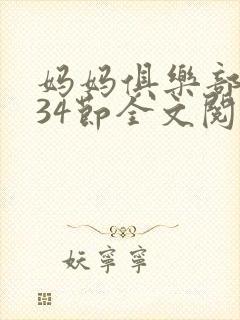 妈妈俱樂部
34節全文閱
妖寧寧